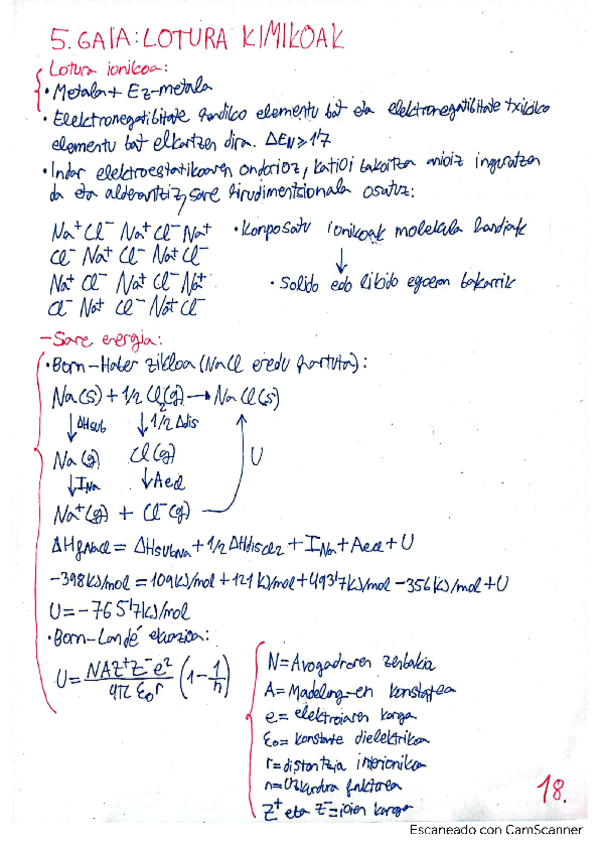 5. GAIA: LOTURA KIMIKOAK
Lotura ionikoa:
• Metala + Ez-metala
• Elektronegatibitate handiko elementu bat eta elektronegatibitate txikiko
elementu bat elkartzen dira. ΔEN ≥ 1'7
• Indar elektroestatikoaren ondorioz, katioi bakoitza anioiz inguratzen
da eta alderantziz, sare hirudimentsionala osatuz:
Na⁺ Cl⁻ Na⁺ Cl⁻ Na⁺ • Konposatu ionikoak molekula handiak
Cl⁻ Na⁺ Cl⁻ Na⁺ Cl⁻ ↓
Na⁺ Cl⁻ Na⁺ Cl⁻ Na⁺ • Solido edo likido egoeran bakarrik
Cl⁻ Na⁺ Cl⁻ Na⁺ Cl⁻
- Sare energia:
• Born-Haber zikloa (NaCl eredu hartuta):
Na(s) + 1/2 Cl₂(g) → NaCl(s)
↓ΔHsub ↓1/2 Δdis
Na(g) Cl(g) U
↓INa ↓AeCl
Na⁺(g) + Cl⁻(g)
ΔHfNaCl = ΔHsubNa + 1/2 ΔHdisCl2 + INa + AeCl + U
-398 kJ/mol = 109 kJ/mol + 121 kJ/mol + 493'7 kJ/mol - 356 kJ/mol + U
U = -765'7 kJ/mol
• Born-Landé ekuazioa:
U = NAZ⁺Z⁻e² / 4π ε₀ r (1 - 1/n)
N = Avogadroren zenbakia
A = Madelung-en konstantea
e = elektroiaren karga
ε₀ = konstante dielektrikoa
r = distantzia interionikoa
n = Uzkurdura faktorea
Z⁺ eta Z⁻ = ioien karga
18.
Escaneado con CamScanner